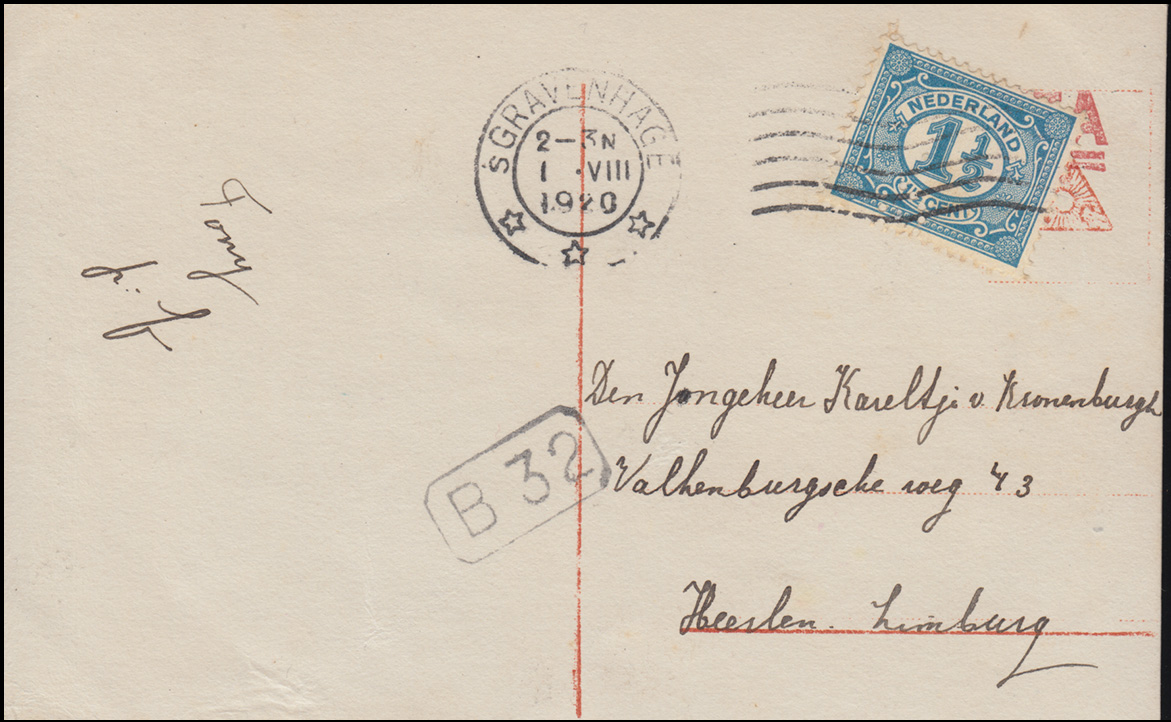 'SGRAVENHAGE
2–3N
1 .VIII
1920
NEDERLAND
1½
1½ CENT
Tony
B 32
Den Jongeheer Kareltje v Kronenburgh
Valkenburgsche weg 43
Heerlen. Limburg